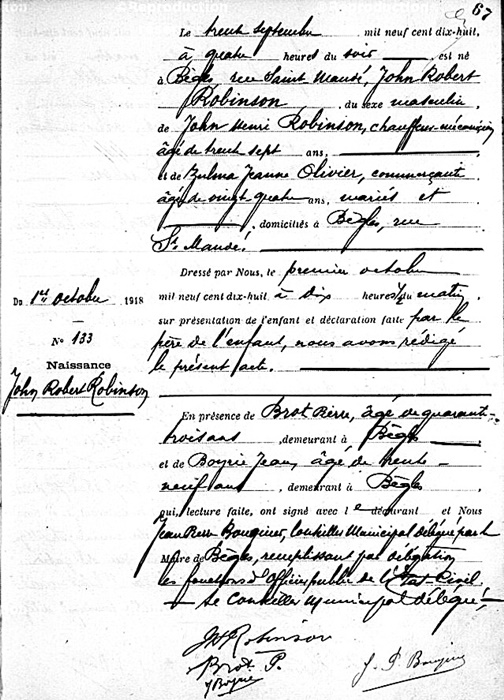 © Reproduction
67
Le trente septembre mil neuf cent dix-huit,
à quatre heures du soir est né
à Bègles rue Saint Maudé, John Robert
Robinson du sexe masculin
de John Henri Robinson, chauffeur-mécanicien
âgé de trente sept ans,
et de Zulma Jeanne Olivier, commerçante
âgée de vingt quatre ans, mariés et
, domiciliés à Bègles, rue
St Maudé.
Dressé par Nous, le premier octobre
mil neuf cent dix-huit à dix heures 1/2 du matin
sur présentation de l'enfant et déclaration faite par le
père de l'enfant, nous avons rédigé
le présent acte.
Du 1er octobre 1918
No 133
Naissance
John Robert Robinson
En présence de Brot Pierre, âgé de quarante-
trois ans, demeurant à Bègles
et de Boyrie Jean, âgé de trente-
neuf ans, demeurant à Bègles
qui, lecture faite, ont signé avec le déclarant et Nous
Jean Pierre Conseiller Municipal délégué par le
Maire de Bègles, remplissant par délégation
les fonctions d'Officier public de l'Etat-Civil.
Le Conseiller Municipal délégué,
Robinson
Brot P.
J Boyrie
J. P.